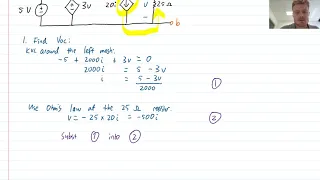 5 V 3v 20i v 25Ω
b
1. Find Voc:
KVL around the left mesh:
-5 + 2000i + 3v = 0
2000i = 5 - 3v
i = 5 - 3v / 2000 ①
Use Ohm's law at the 25 Ω resistor.
v = -25 × 20i = -500i ②
Subst ① into ②